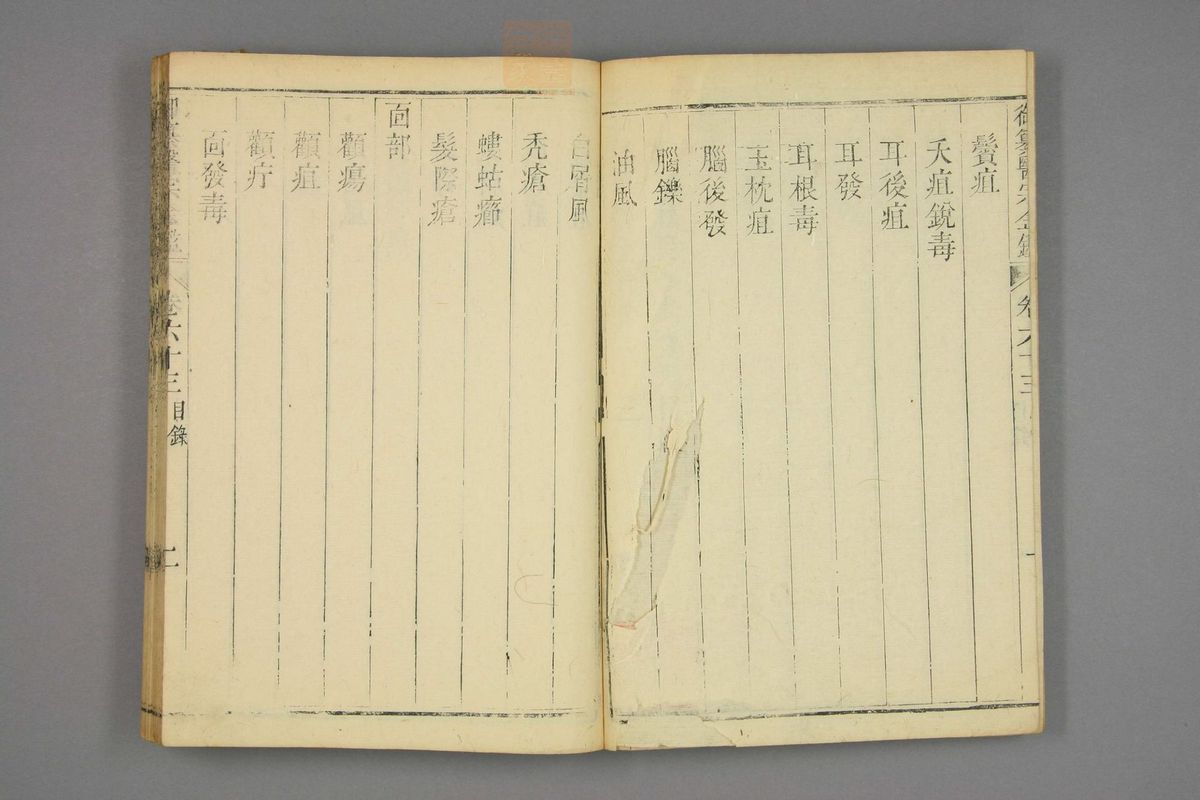 御纂醫宗金鑑 卷六十三 一
鬢疽
夭疽銳毒
耳後疽
耳發
耳根毒
玉枕疽
腦後發
腦鑠
油風
白屑風
禿瘡
螻蛄癤
髮際瘡
面部
顴瘍
顴疽
顴疔
面發毒
卷六十三 目錄 二